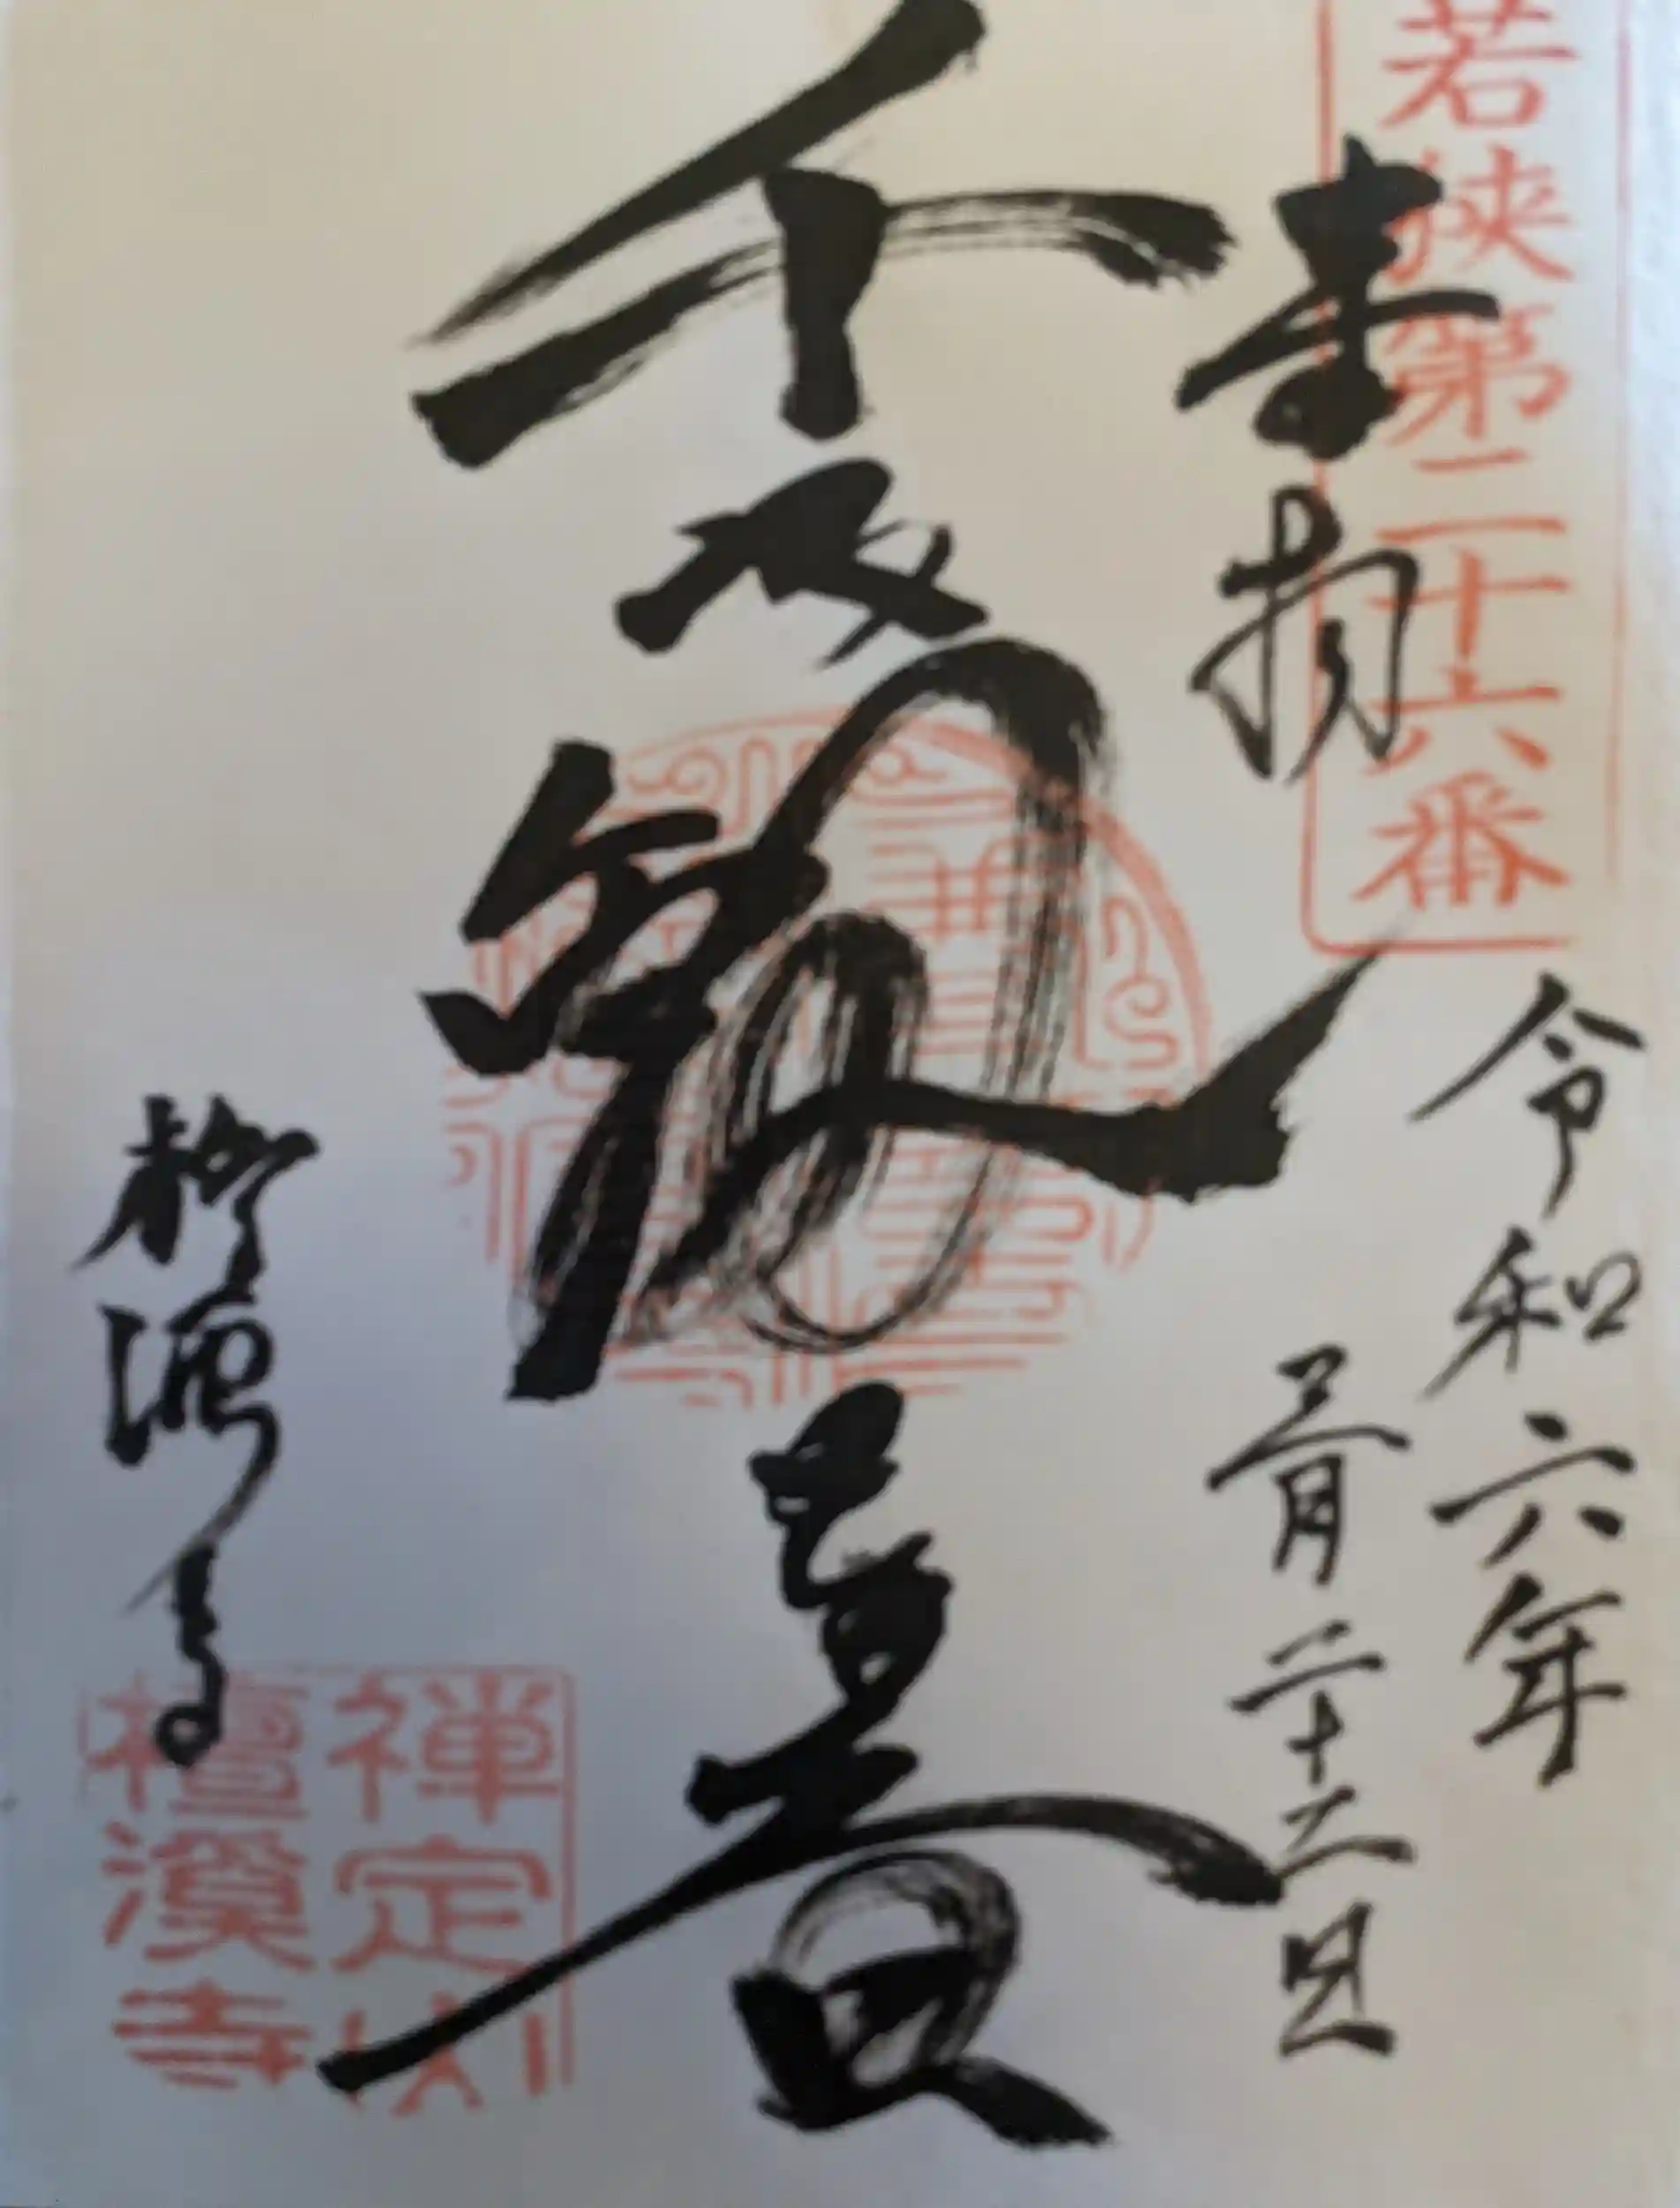 若狭第二十六番
奉拝
令和六年
三月二十二日
千手観音
檀渓寺
禅定山
檀溪寺